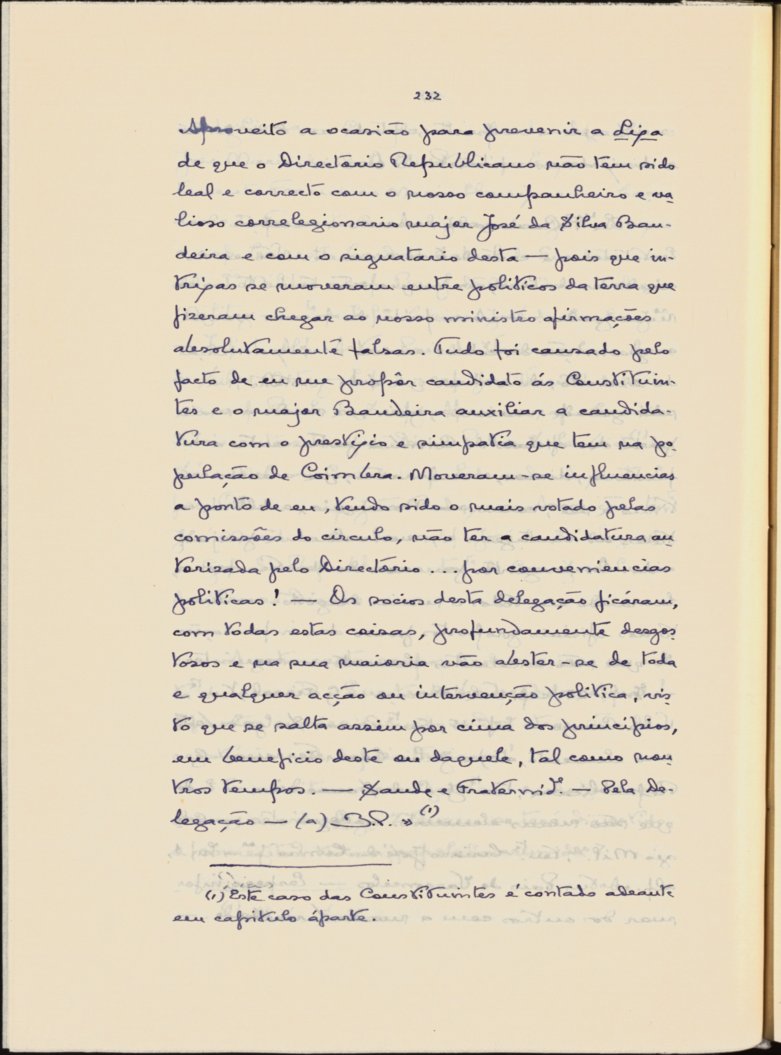 232
Aproveito a ocasião para prevenir a Liga
de que o Directorio Republicano não tem sido
leal e correcto com o nosso companheiro e va-
lioso correlegionario major José da Silva Ban-
deira e com o signatario desta — pois que in-
trigas se moveram entre politicos da terra que
fizeram chegar ao nosso ministeo afirmações
absolutamente falsas. Tudo foi causado pelo
facto de eu me propôr candidato ás Constituin-
tes e o major Bandeira auxiliar a candida-
tura com o prestigio e simpatia que tem na po-
pulação de Coimbra. Moveram-se influencias
a ponto de eu, tendo sido o mais votado pelas
comissões do circulo, não ter a candidatura au-
torisada pelo Directorio ... por conveniencias
politicas! — Os socios desta delegação ficáram,
com todas estas coisas, profundamente desgos-
tosos e na sua maioria vão abster-se de toda
e qualquer acção ou intervenção politica, vis-
to que se salta assim por cima dos principios,
em beneficio deste ou daquele, tal como nou-
tros tempos. — Saude e Fraternid.e — Pela De-
legação — (a) B.P. » (1)
(1) Este caso das Constituintes é contado adeante
em capitulo áparte.